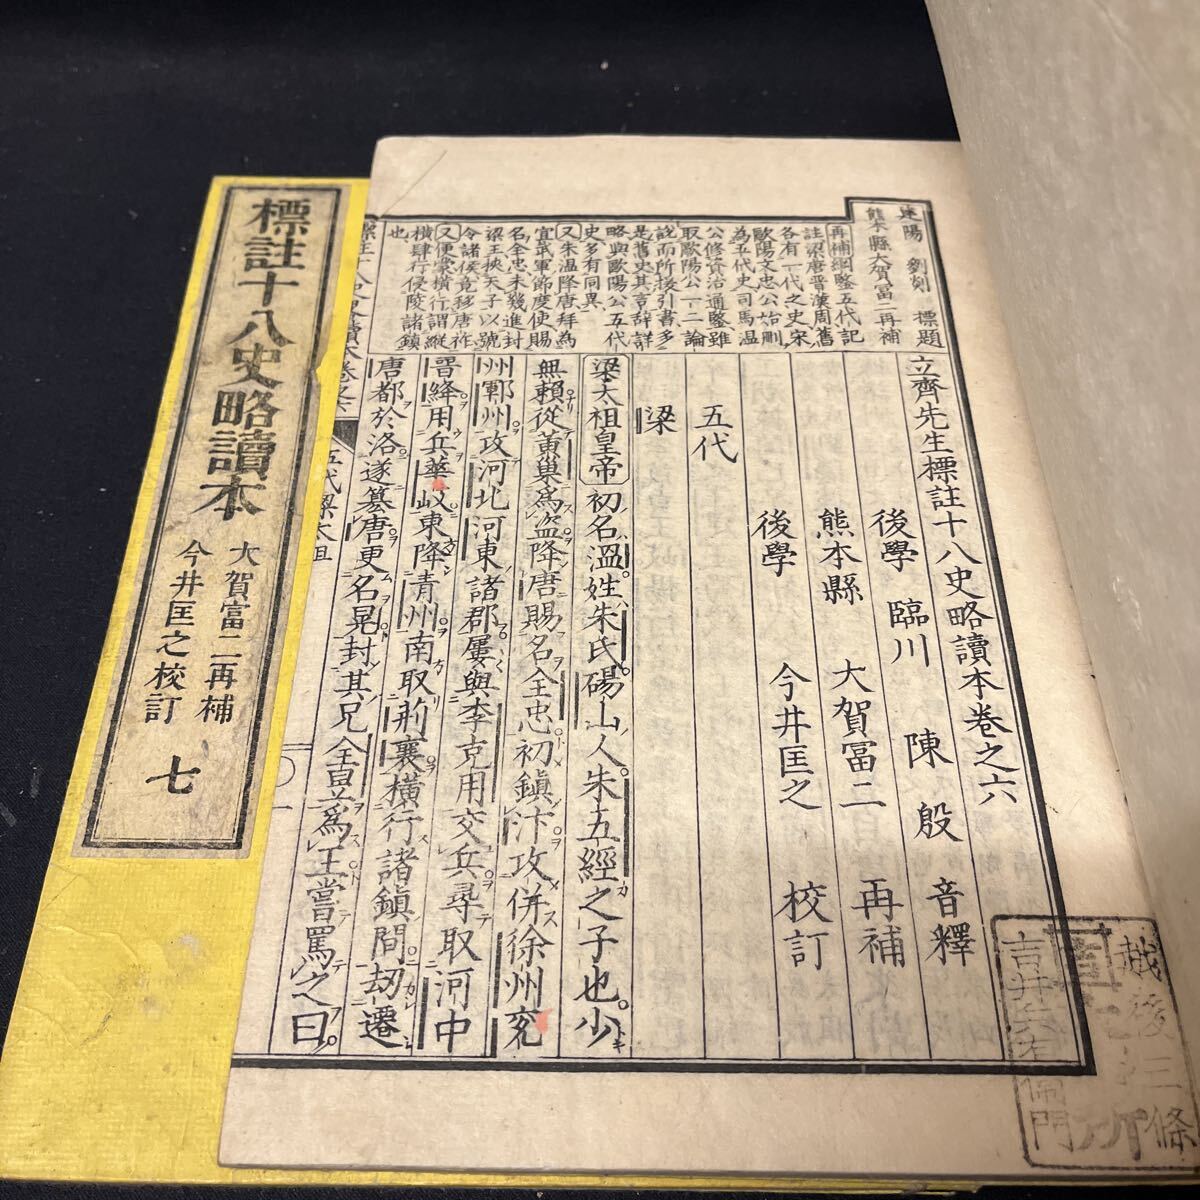 標註十八史略讀本
大賀富二再補
今井匡之校訂
七
劉剡 標題
熊本縣大賀冨二再補
再補綱鑒五代記
註梁唐晉漢周舊
各有一代之史宋
歐陽文忠公始刪
為五代史司馬温
公修資治通鑒雖
取歐陽公一二論
說而所援引書多
是舊史其言辭詳
略與歐陽公五代
史多有同異
又朱温降唐拜為
宣武軍節度使賜
名全忠未幾進封
梁王挾天子以號
令諸侯竟移唐祚
又便黨橫行謂縱
橫肆行侵陵諸鎮
也
立齊先生標註十八史略讀本卷之六
後學 臨川 陳殷 音釋
熊本縣 大賀冨二 再補
後學 今井匡之 校訂
五代
梁
梁太祖皇帝初名溫姓朱氏碭山人朱五經之子也少
無賴從黃巢爲盜降唐賜名全忠初鎮汴攻併徐州兗
州鄆州攻河北河東諸郡屢與李克用交兵尋取河中
晉絳用兵華岐東降青州南取荊襄橫行諸鎮間劫遷
唐都於洛遂簒唐更名晃封其兄全昱爲王嘗罵之曰
五代梁太祖
越後三條
吉井